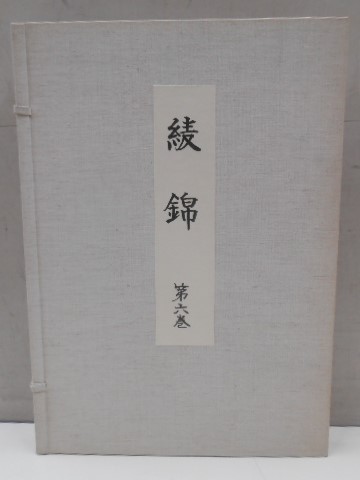 綾錦
第六巻